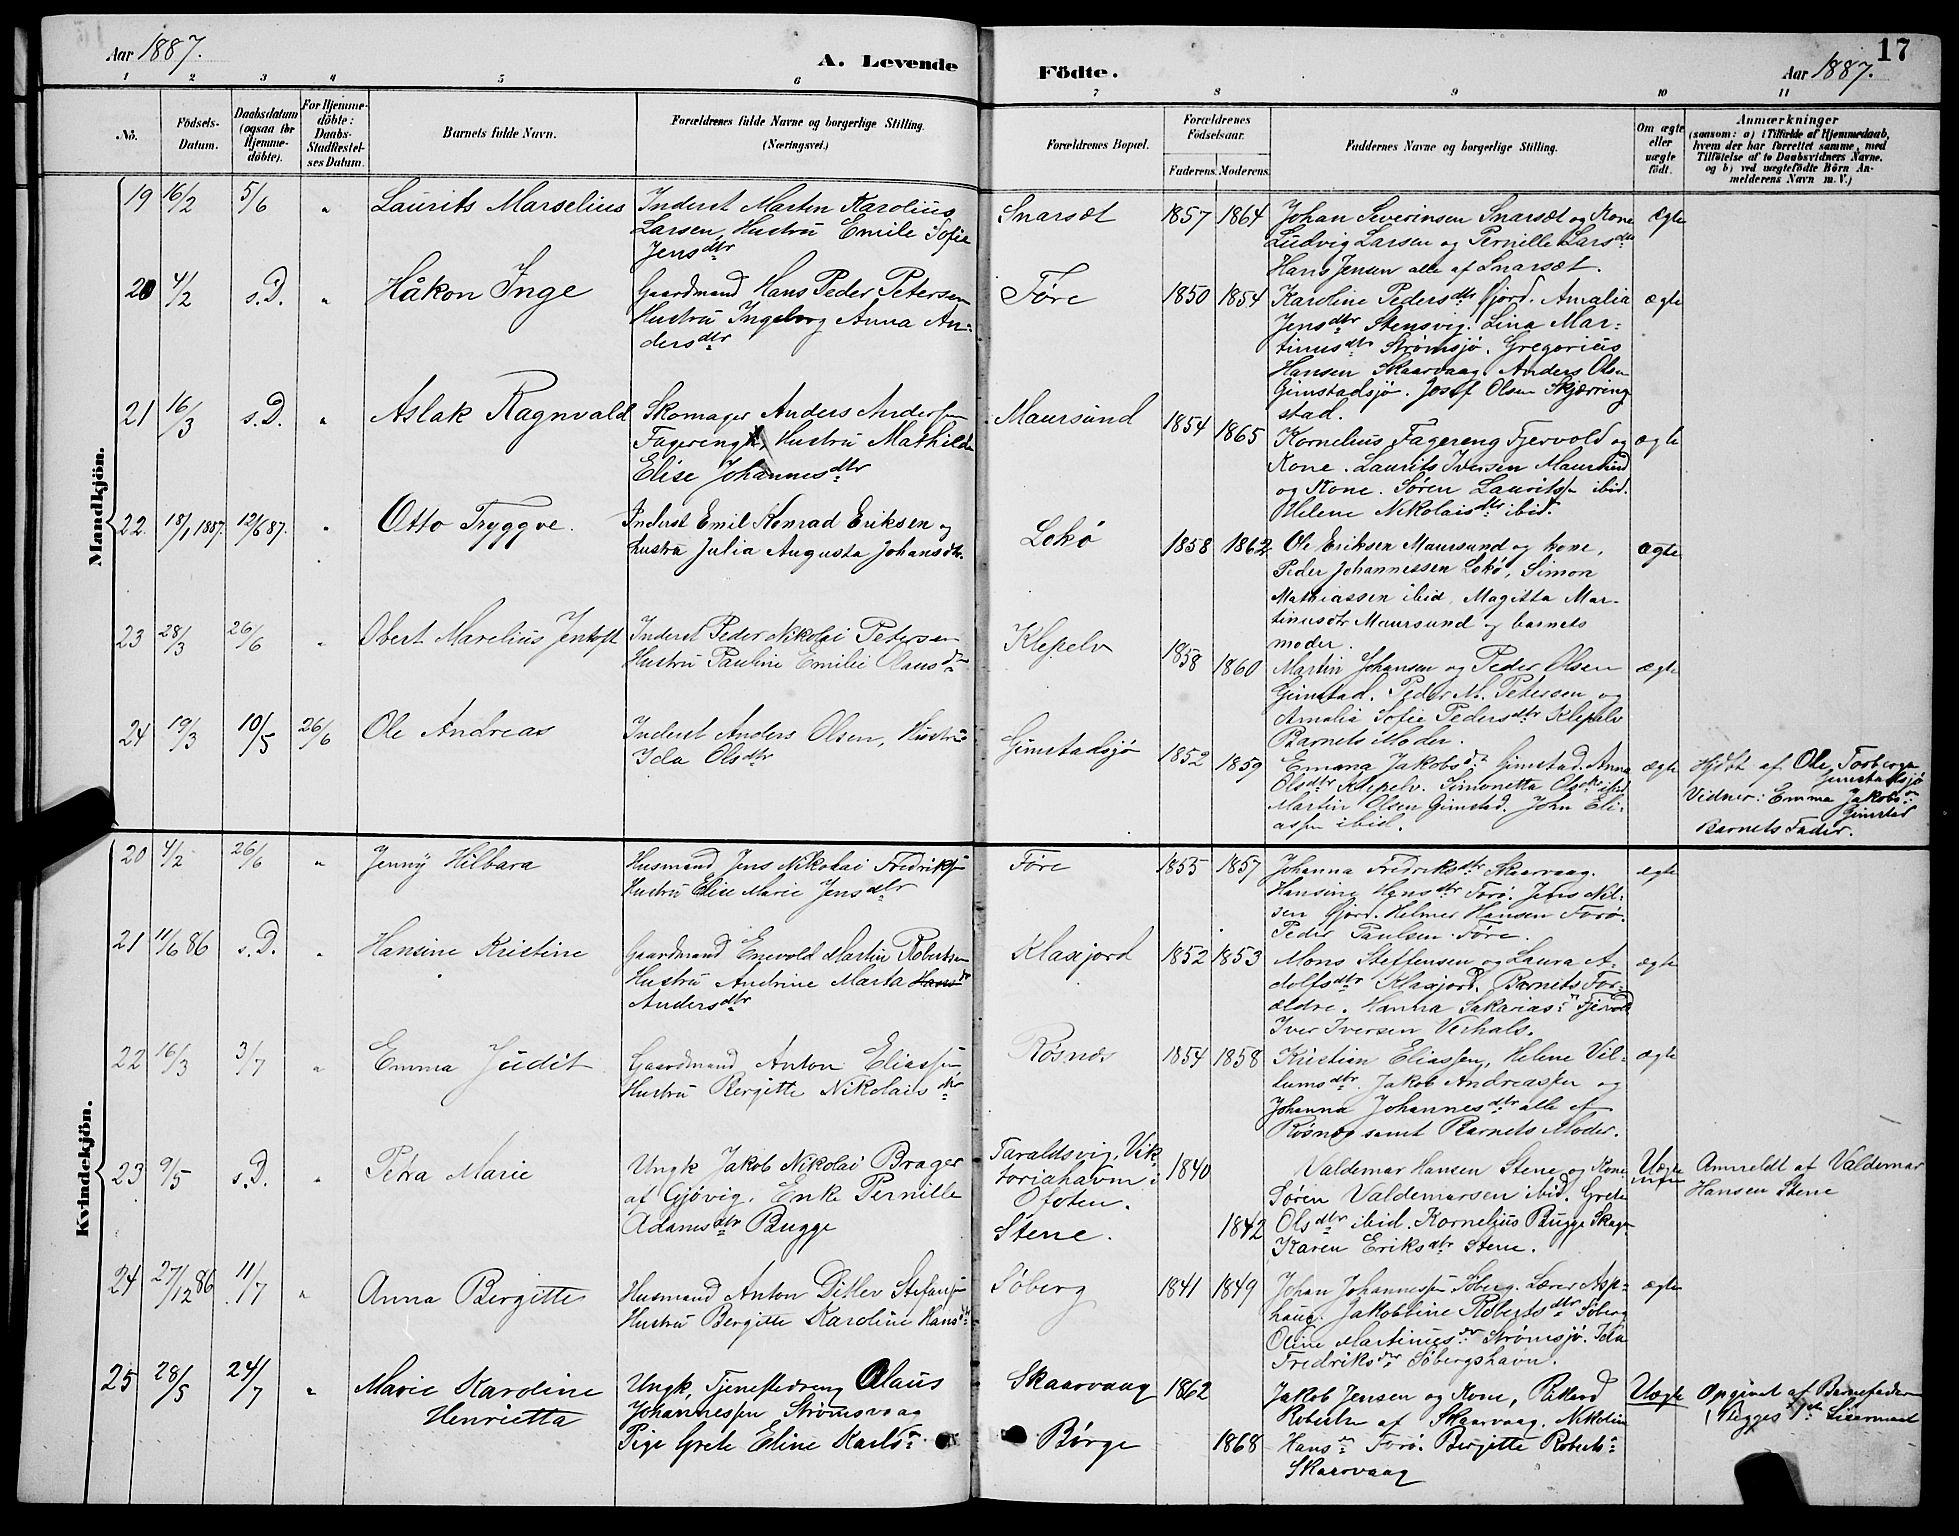 Aar 1887.
A. Levende Födte.
Aar 1887.
17
1 2 3 4 5 6 7 8 9 10 11
No.
Födsels-Datum.
Daabsdatum (ogsaa for Hjemme-döbte).
For Hjemme-döbte: Daabs-Stadfæstel-ses Datum.
Barnets fulde Navn.
Forældrenes fulde Navne og borgerlige Stilling. (Næringsvei.)
Forældrenes Bopæl.
Forældrenes Födselsaar.
Faderens. Moderens.
Faddernes Navne og borgerlige Stilling.
Om ægte eller uægte født.
Anmærkninger
(saasom: a) i Tilfælde af Hjemmedaab, hvem der har forrettet samme, med Tilföielse af to Daabsvidners Navne, og b) ved uægtefödte Börn An-melderens Navn m. V.)
Mandkjön.
19 16/2 5/6 " Laurits Marselius
Inderst Martin Karolius
Larsen, Hustru Emilie Sofie
Jensdtr
Snarsæt 1857 1864
Johan Severinsen Snarsæt og Kone
Ludvig Larsen og Pernille Larsdtr
Hans Jensen alle af Snarsæt.
ægte
20 4/2 s.D. " Håkon Inge
Gaardmand Hans Peder Petersen
Hustru Ingeborg Anna An-
dersdtr
Føre 1850 1854
Karoline Pedersdtr Gjord. Amalia
Jensdtr Stensvig. Lina Mar-
tinusdtr Strømsjø. Gregorius
Hansen Skaarvaag. Anders Olsen
Gimstadsjø. Josef Olsen Skjærring
stad.
ægte
21 16/3 s.D. " Aslak Ragnvald
Skomager Anders Andersen
Fagereng, Hustru Mathilde
Elise Johannesdtr
Maursund 1854 1865
Kornelius Fagereng Tjervold og
Kone. Laurits Iversen Maursund
og Kone. Søren Lauritsen ibid.
Helene Nikolaisdtr ibid.
ægte
22. 18/1 1887. 12/6 87. " Otto Tryggve.
Inderst Emil Konrad Eriksen og
hustru Julia Augusta Johansdtr.
Lokø 1858 1862
Ole Eriksen Maursund og kone,
Peder Johannessen Lokø, Simon
Mathiassen ibid, Magitta Mar-
tinusdtr Maursund og barnets
moder.
ægte
23 28/3 26/6 " Obert Marelius Jentoft
Inderst Peder Nikolai Petersen
Hustru Pauline Emilie Olausdtr
Klepelv 1858 1860
Martin Johansen og Peder Olsen
Gimstad. Peder M. Petersen og
Amalia Sofie Pedersdtr Klepelv
Barnets Moder.
ægte
24 19/3 10/5 26/6 Ole Andreas
Inderst Anders Olsen, Hustru
Ida Olsdtr
Gimstadsjø 1852 1859
Emma Jakobsdtr Gimstad. Anna
Olsdtr Klepelv. Simonetta Olsdtr ibid
Martin Olsen Gimstad. John Eli-
assen ibid.
ægte
Hjdbt af Ole Torbergs
Gimstadsjø
Vidner: Emma Jakobsdtr
Gimstad
Barnets Fader.
Kvindekjön.
20 4/2 26/6 " Jenny Hilbara
Husmand Jens Nikolai Fredriksen
Hustru Elise Marie Jensdtr
Føre 1855 1857
Johanna Fredriksdtr Skaarvaag.
Hansine Hansdtr Forø. Jens Nil-
sen Gjord. Helmer Hansen Forø.
Peder Paulsen Føre.
ægte
21 11/6 86 s.D. " Hansine Kristine
Gaardmand Enevold Martin Robertsen
Hustru Andrine Marta Hansdtr
Andersdtr
Klaxjord 1852 1853
Mons Steffensen og Laura A-
dolfsdtr Klaxjord. Barnets For-
ældre. Hanna Sakariasdtr Tjervold
Iver Iversen Verhals.
ægte
22 16/3 3/7 " Emma Judit
Gaardmand Anton Eliassen
Hustru Bergitte Nikolaisdtr
Røsnes 1854 1858
Kristian Eliassen, Helene Vil-
lumsdtr. Jakob Andreassen og
Johanna Johannesdtr alle af
Røsnes samt Barnets Moder.
ægte
23 9/5 s.D. " Petra Marie
Ungk Jakob Nikolai Brager
af Gjøvig. Enke Pernille
Adamsdtr Bugge
Taraldsvig, Vik-
toriahavn i
Ofoten.
Stene.
1840
1842
Valdemar Hansen Stene og Kone
Søren Valdemarsen ibid. Grete
Olsdtr ibid. Kornelius Bugge Skagen
Karen Eriksdtr Stene.
Uægte
Anmeldt af Valdemar
Hansen Stene
24 27/12 86 11/7 " Anna Bergitte
Husmand Anton Ditlev Stefansen
Hustru Bergitte Karoline Hansdtr
Søberg 1841 1849
Johan Johannessen Søberg. Lærer Asp-
haug. Jakobbine Robertsdtr Søberg
Oline Martinusdtr Strømsjø. Ida
Fredriksdtr Søbergshavn.
ægte
25 28/5 24/7 " Marie Karoline
Henrietta
Ungk, Tjenestedreng Olaus
Johannessen Strømsvaag
Pige Grete Eline Karlsdtr
Skaarvaag
Børge
1862
1868
Jakob Jensen og Kone, Rikard
Robertsen af Skaarvaag. Nikoline
Hansdtr Forø. Bergitte Robertsdtr
Skaarvaag
Uægte
Opgivet af Barnefaderen